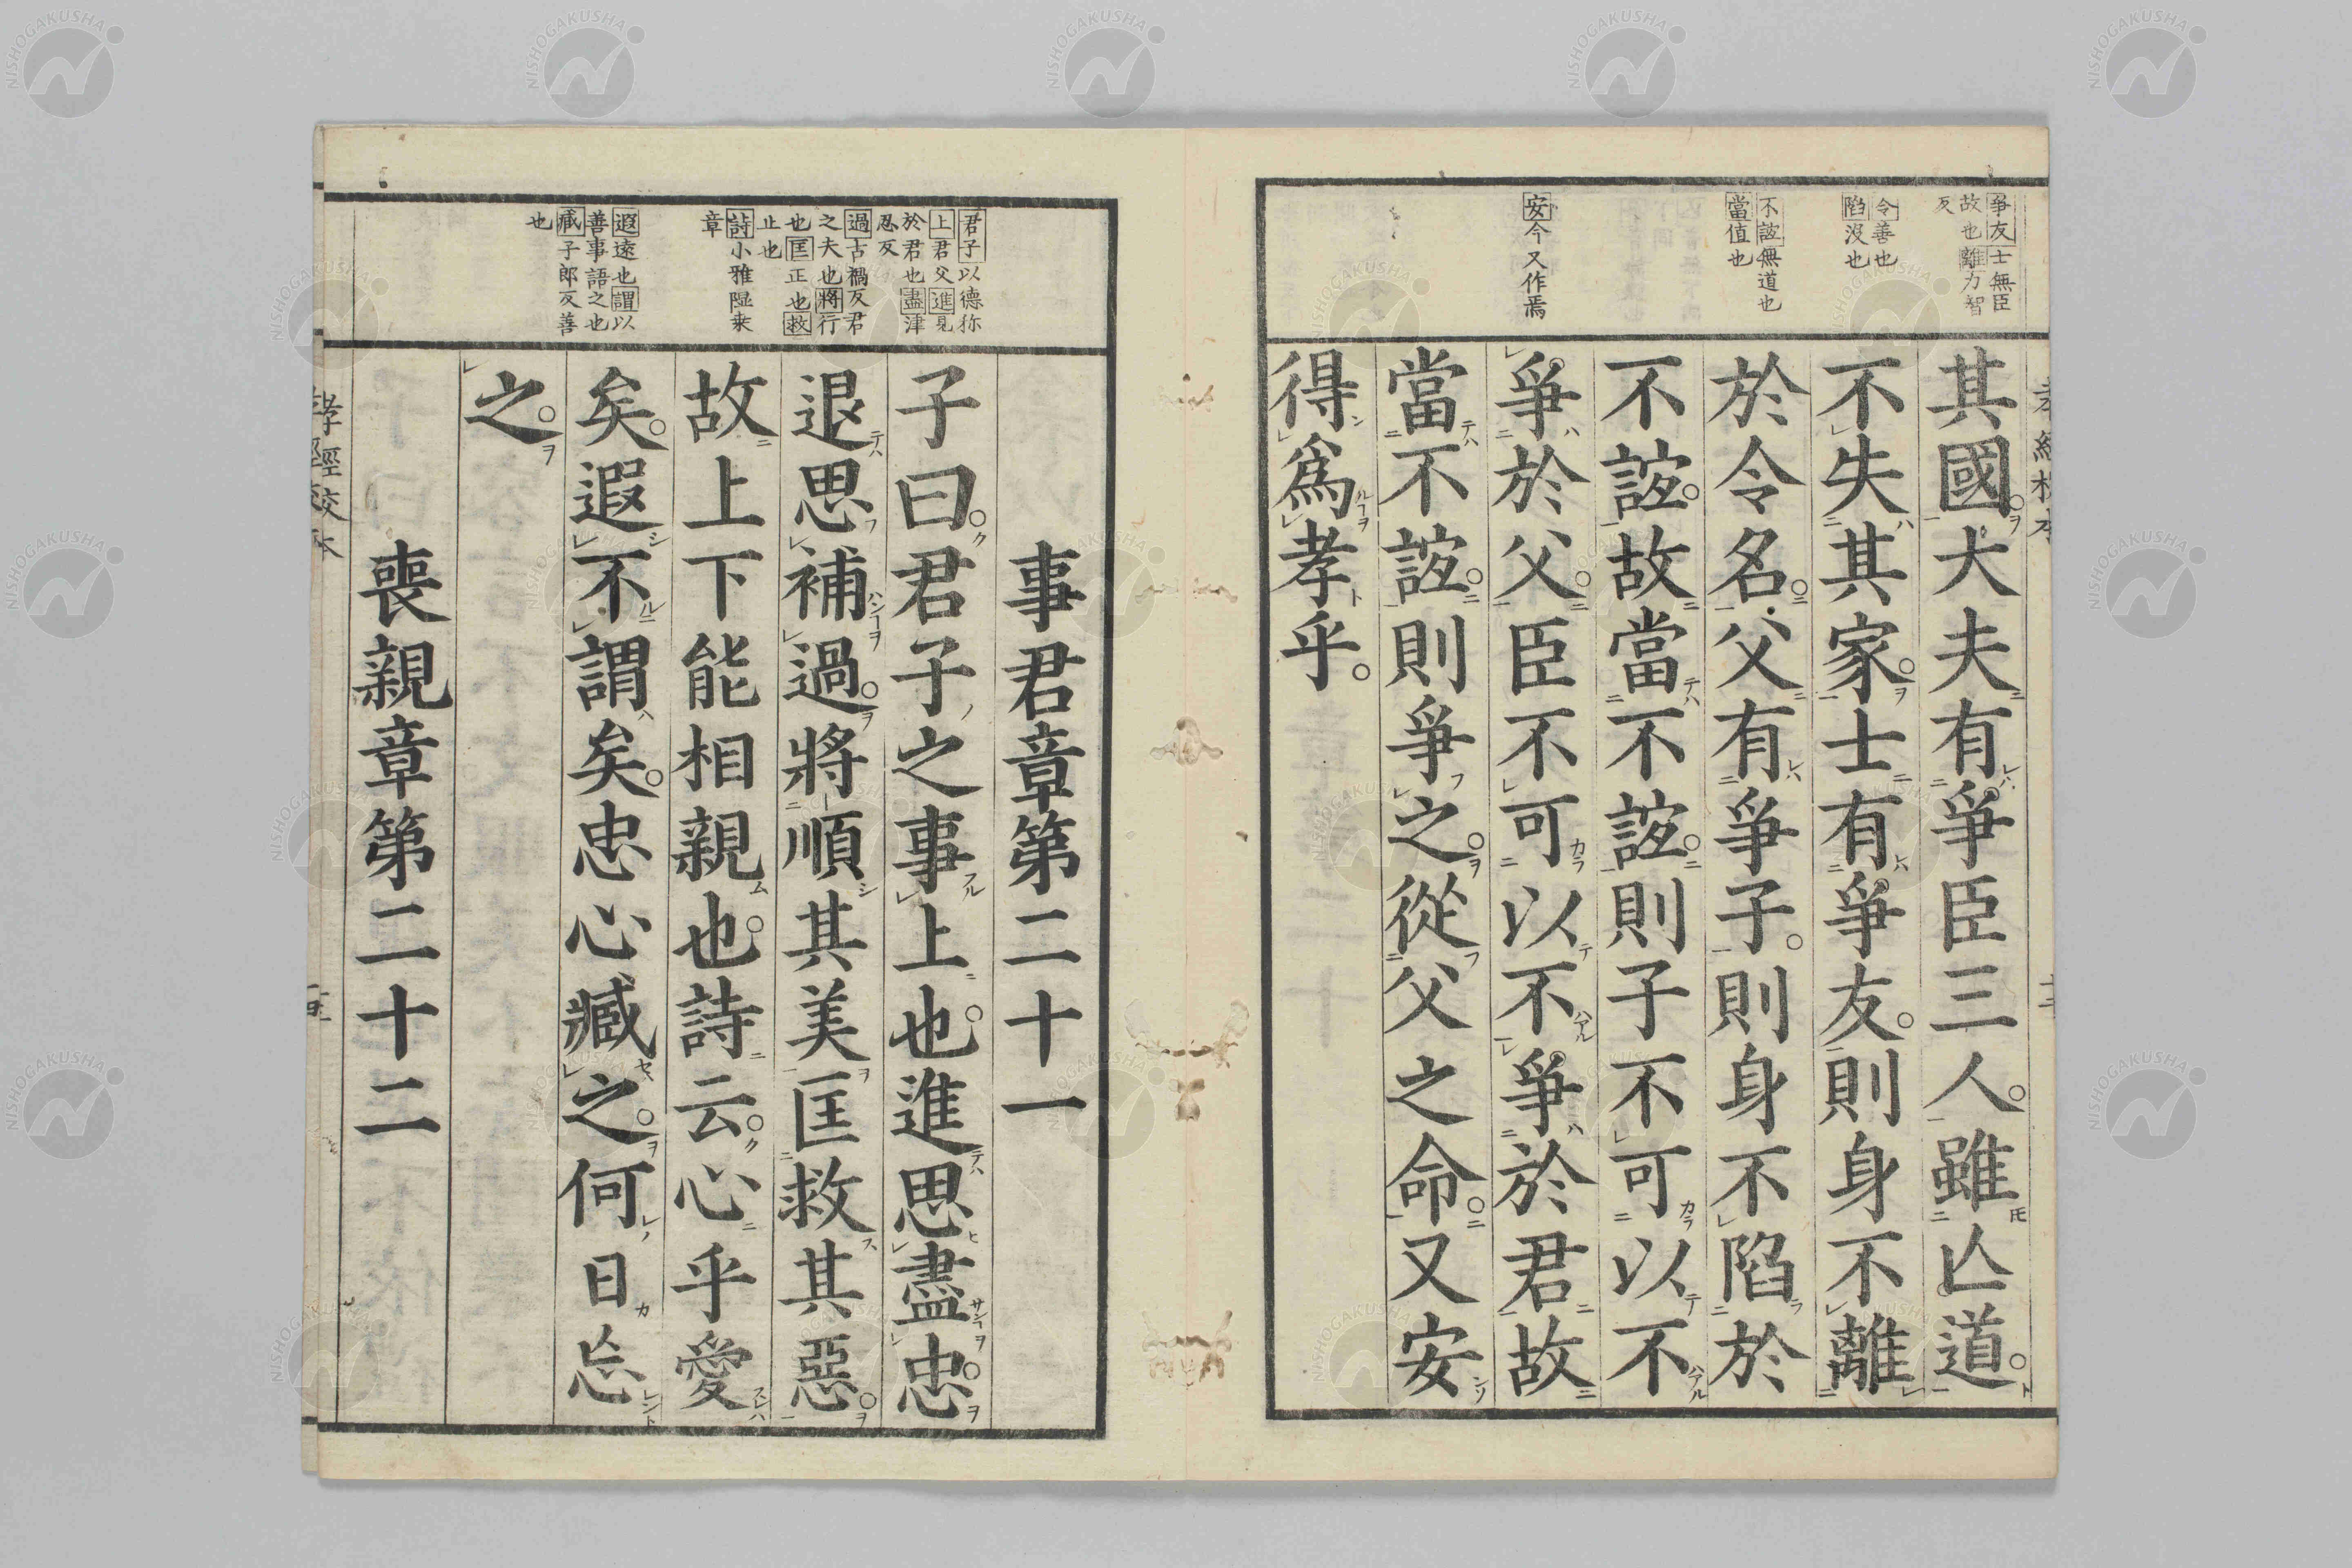 爭友士無臣
故也離力智
反
令善也
陷没也
不誼無道也
當值也
安今又作焉
其國大夫有爭臣三人雖亾道
不失其家士有爭友則身不離
於令名父有爭子則身不陷於
不誼故當不誼則子不可以不
爭於父臣不可以不爭於君故
當不誼則爭之從父之命又安
得爲孝乎
君子以德称
上君父進見
於君也盡津
忍反
過古禍反君
之夫也將行
也匡正也救
止也
詩小雅隰桒
章
遐遠也謂以
善事語之也
臧子郎反善
也
事君章第二十一
子曰君子之事上也進思盡忠
退思補過將順其美匡救其惡
故上下能相親也詩云心乎愛
矣遐不謂矣忠心臧之何日忘
之
喪親章第二十二
孝經校本
NISHOGAKUSHA